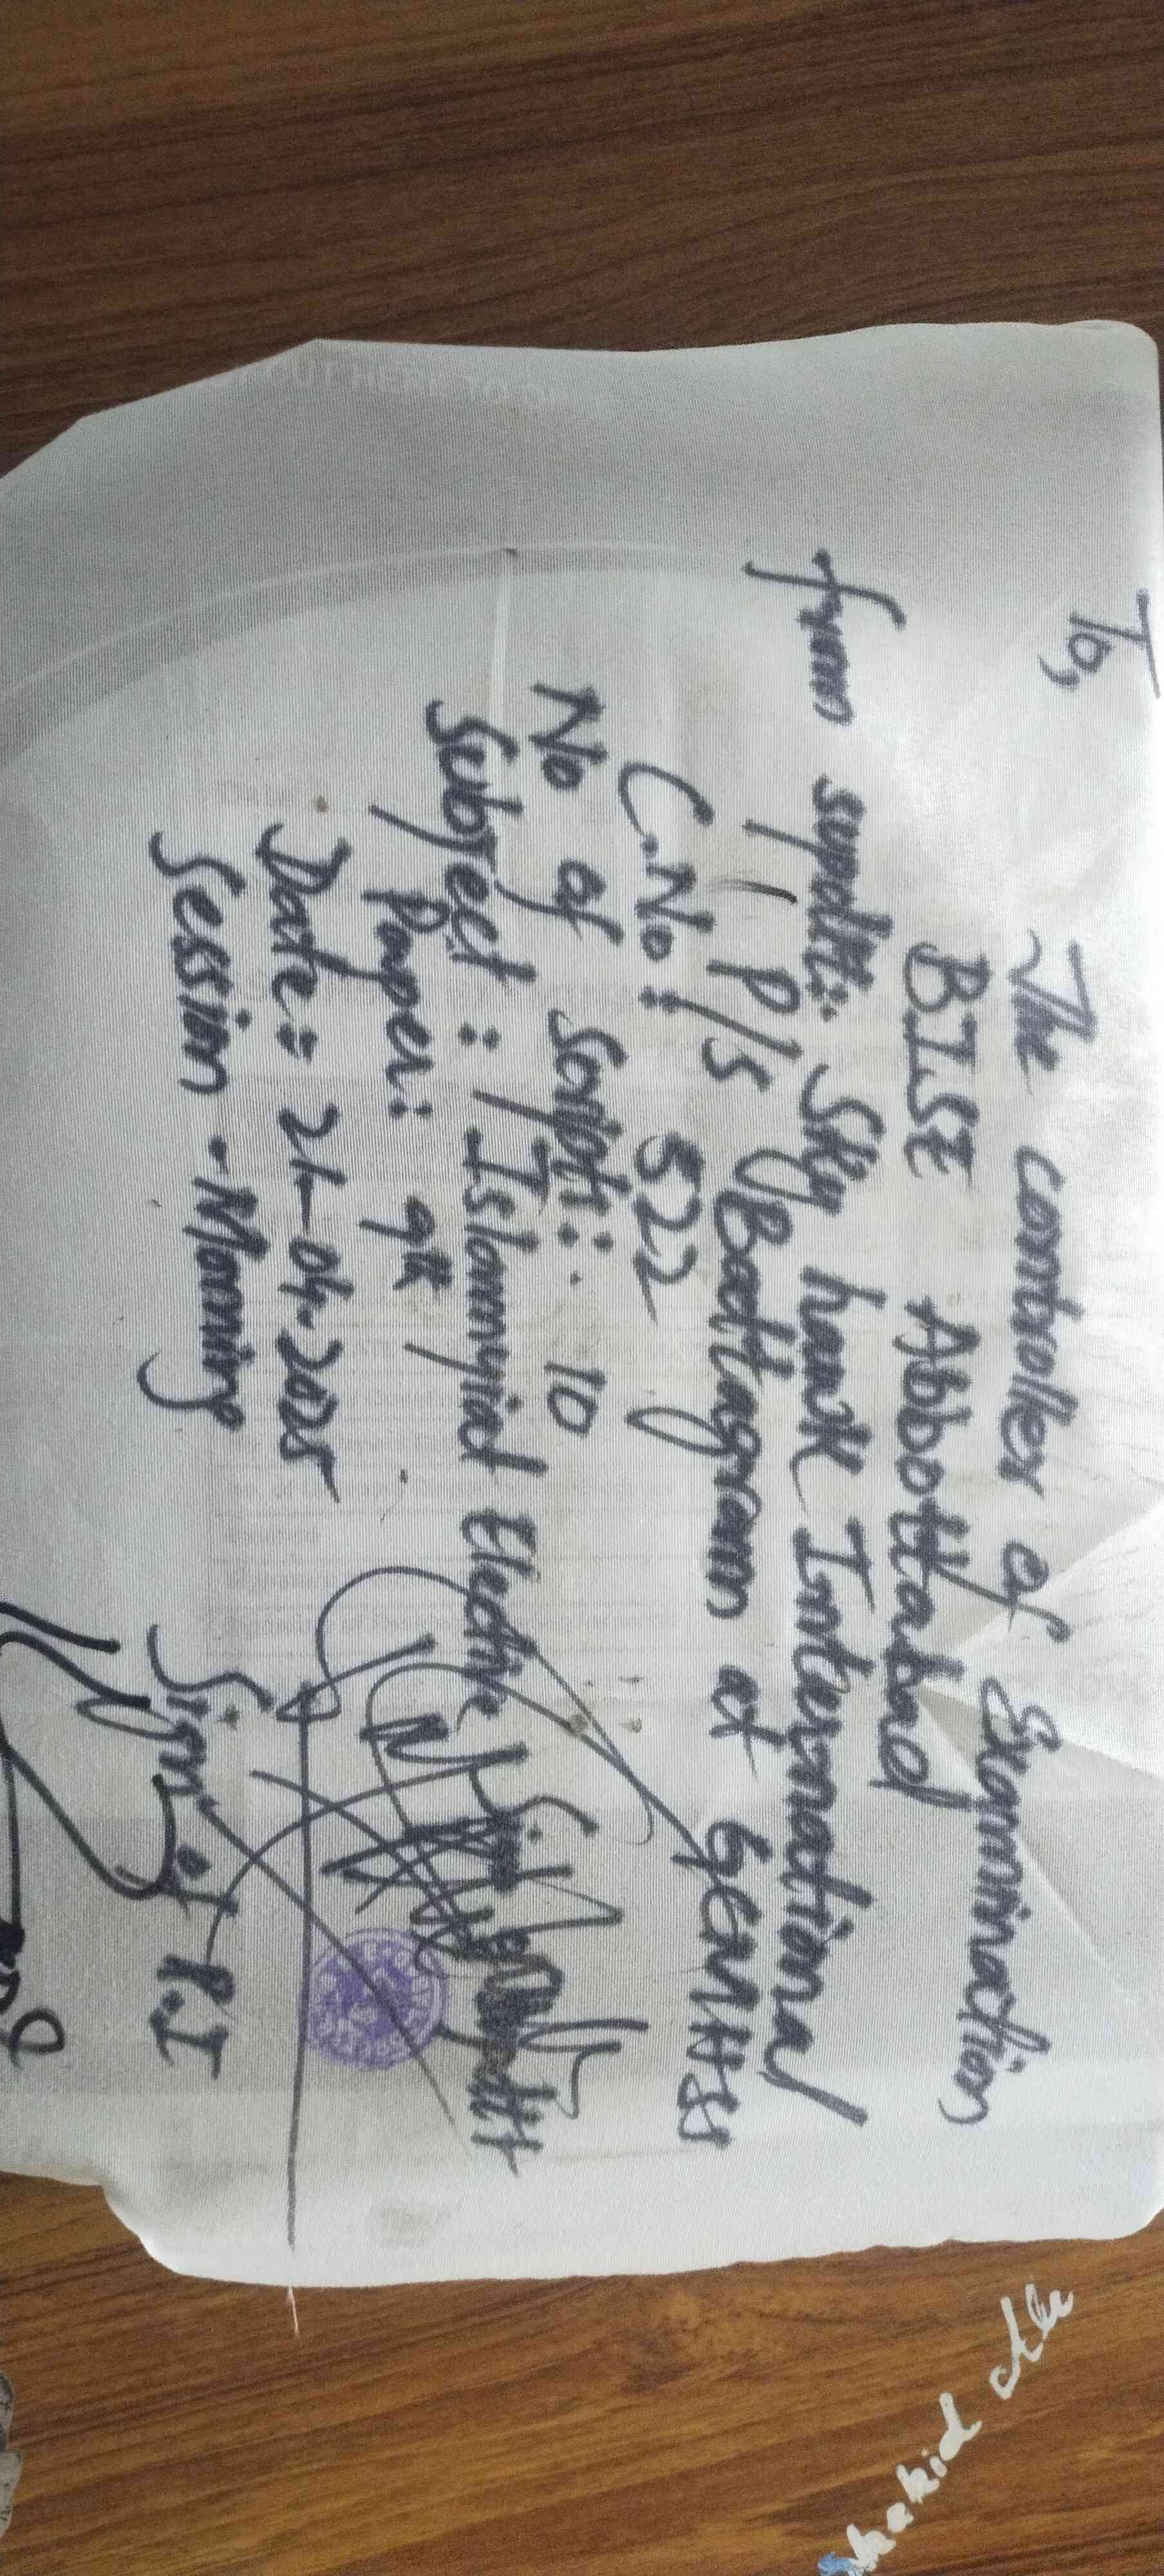 To,
The controller of Examination
BISE Abbottabad
from supdtt: Sky hawk International
P/S Battagram at GCMHSS
C.No: 522
No of script: 10
Subject: Islamyiat Elective
Paper: 9th
Date: 21-04-2025
Session - Morning
Sign of Supdtt
Sign of R.I
CUT HERE TO OP
Shahid